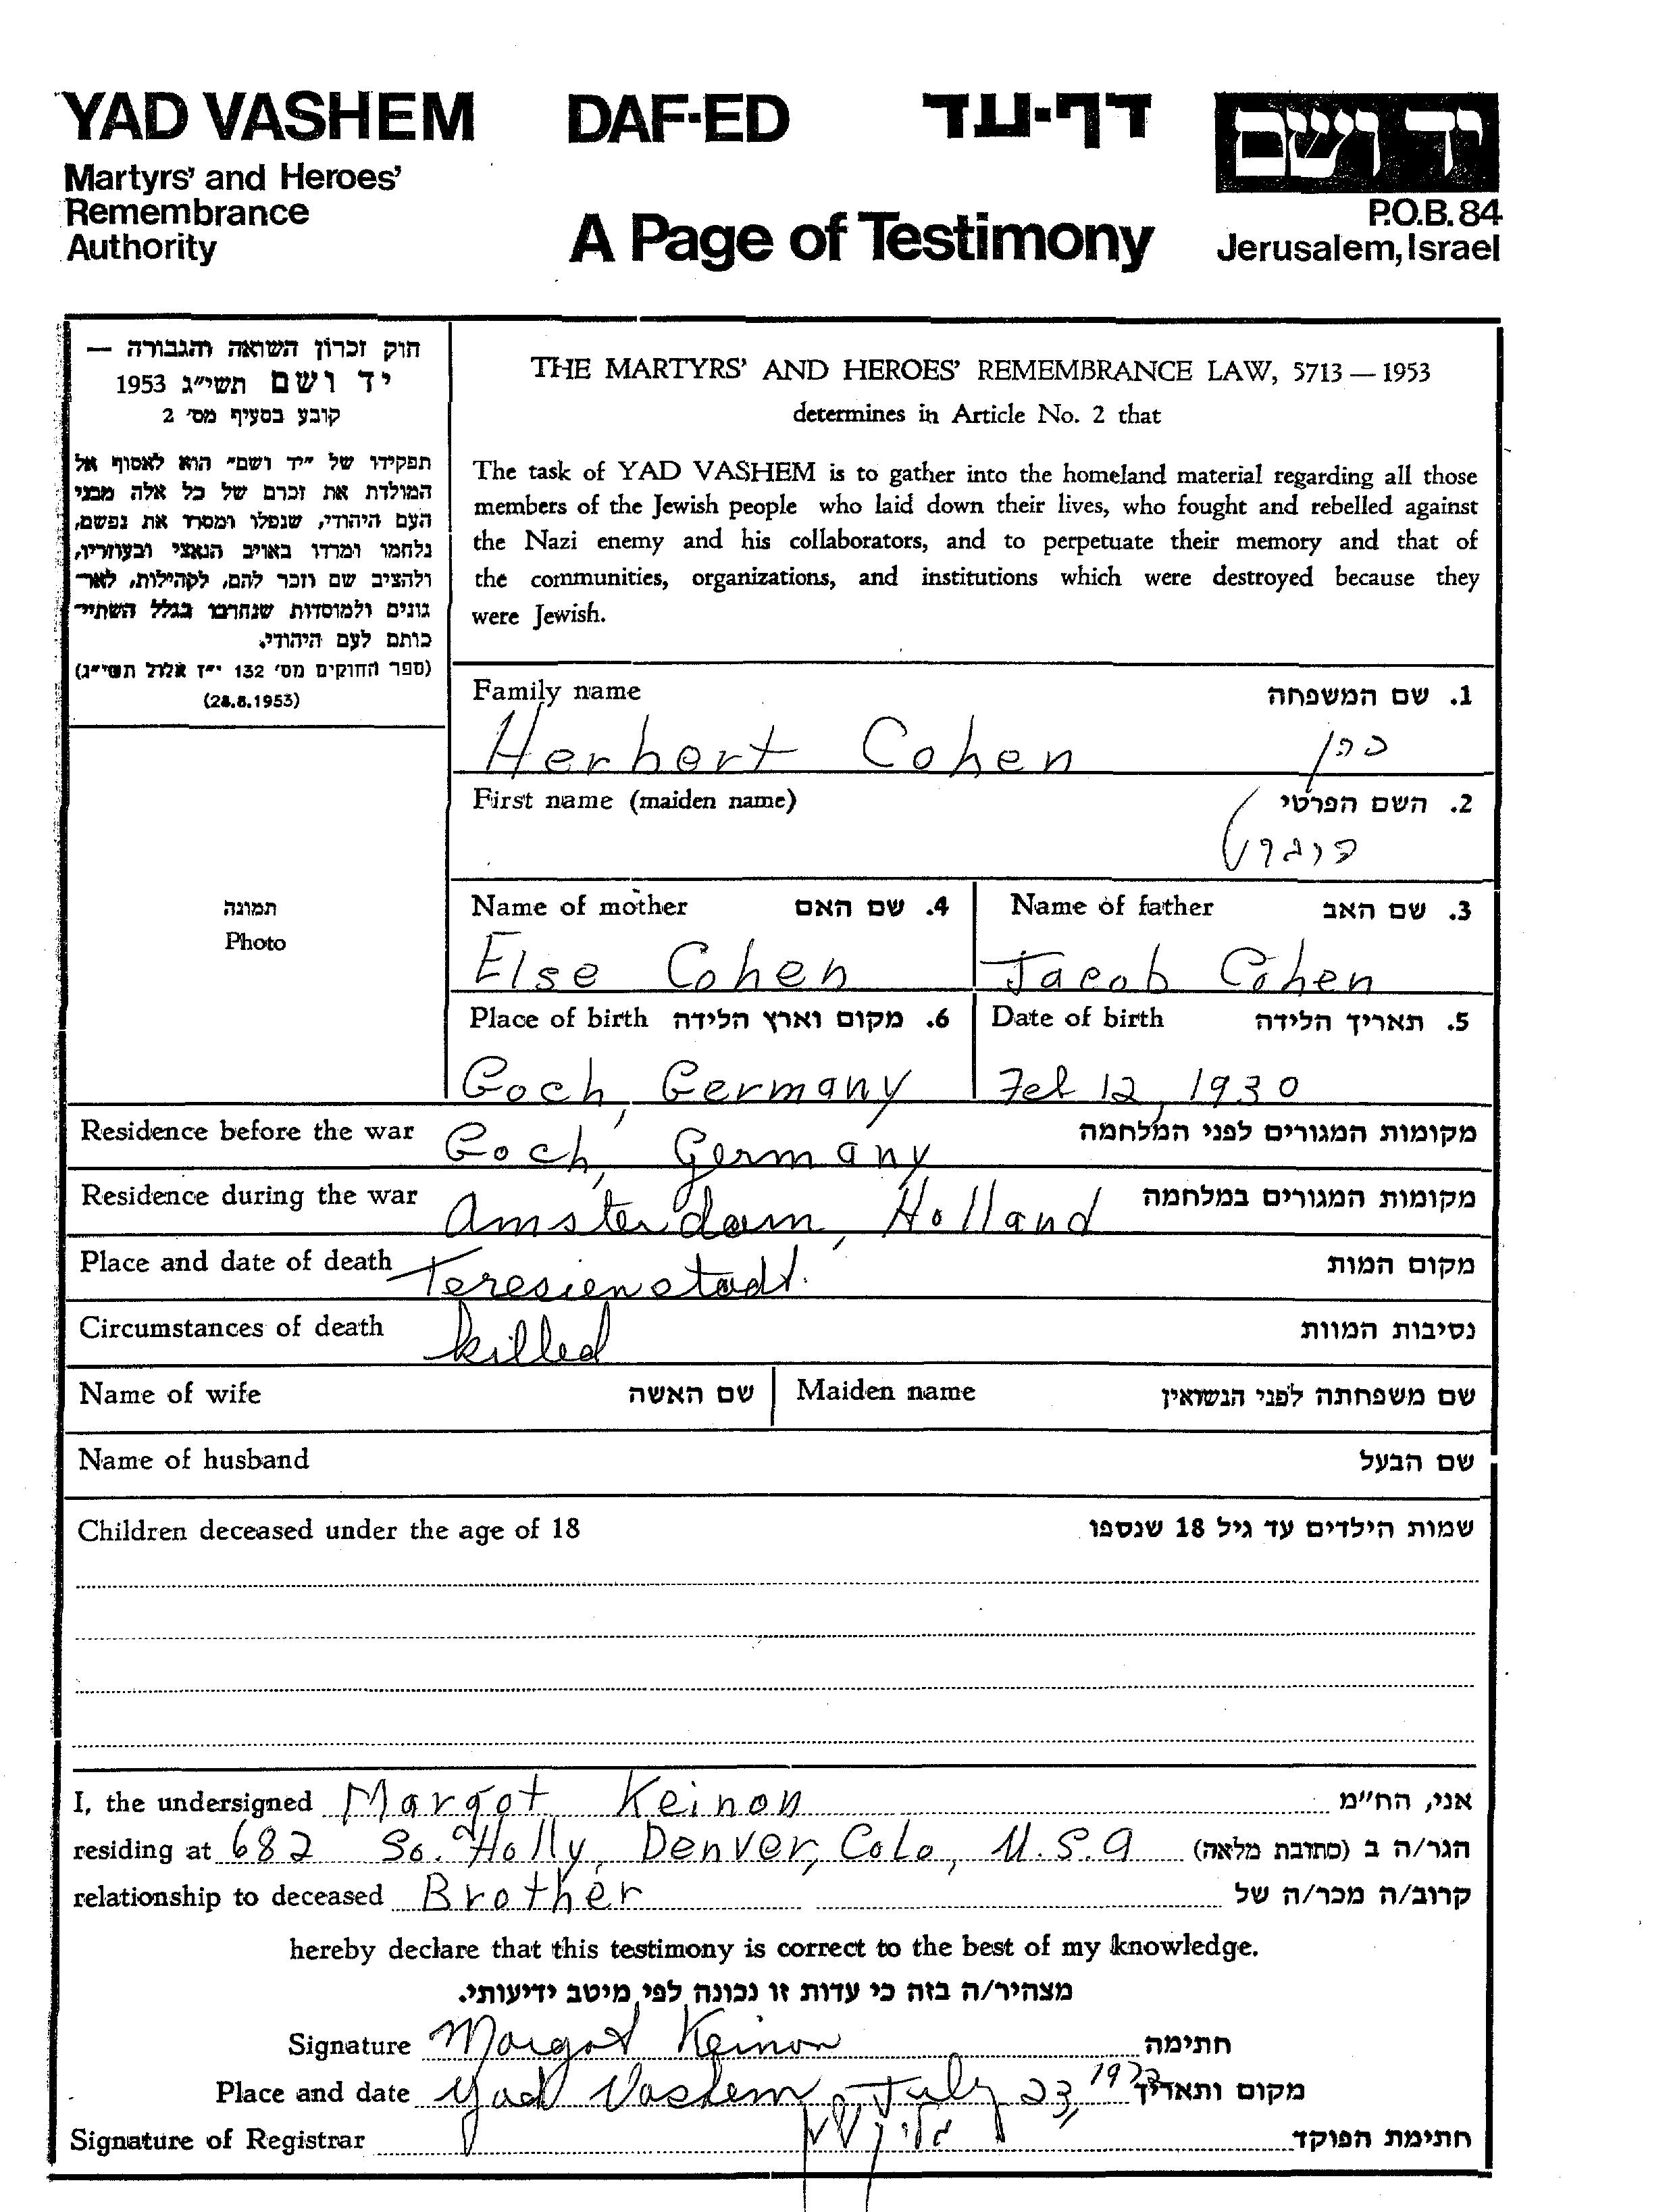 YAD VASHEM DAF-ED דף-עד יד ושם
Martyrs' and Heroes'
Remembrance
Authority
A Page of Testimony
P.O.B. 84
Jerusalem, Israel
חוק זכרון השואה והגבורה —
יד ושם תשי"ג 1953
קובע בסעיף מס' 2
תפקידו של "יד ושם" הוא לאסוף אל
המולדת את זכרם של כל אלה מבני
העם היהודי, שנפלו ומסרו את נפשם,
נלחמו ומרדו באויב הנאצי ובעוזריו,
ולהציב שם וזכר להם, לקהילות, לאר־
גונים ולמוסדות שנחרבו בגלל השתיי־
כותם לעם היהודי.
(ספר החוקים מס' 132 י"ז אלול תשי"ג)
(28.8.1953)
THE MARTYRS' AND HEROES' REMEMBRANCE LAW, 5713 — 1953
determines in Article No. 2 that
The task of YAD VASHEM is to gather into the homeland material regarding all those
members of the Jewish people who laid down their lives, who fought and rebelled against
the Nazi enemy and his collaborators, and to perpetuate their memory and that of
the communities, organizations, and institutions which were destroyed because they
were Jewish.
Family name 1. שם המשפחה
Herbert Cohen כהן
First name (maiden name) 2. השם הפרטי
תמונה
Photo
Name of mother 4. שם האם Name of father 3. שם האב
Else Cohen Jacob Cohen
Place of birth 6. מקום וארץ הלידה Date of birth 5. תאריך הלידה
Goch, Germany Feb 12, 1930
Residence before the war Goch, Germany מקומות המגורים לפני המלחמה
Residence during the war Amsterdam, Holland מקומות המגורים במלחמה
Place and date of death Teresienstadt. מקום המות
Circumstances of death killed נסיבות המוות
Name of wife שם האשה Maiden name שם משפחתה לפני הנשואין
Name of husband שם הבעל
Children deceased under the age of 18 שמות הילדים עד גיל 18 שנספו
I, the undersigned Margot Keinon אני, הח"מ
residing at 682 So. Holly, Denver, Colo, U.S.A הגר/ה ב (כתובת מלאה)
relationship to deceased Brother קרוב/ה מכר/ה של
hereby declare that this testimony is correct to the best of my knowledge.
מצהיר/ה בזה כי עדות זו נכונה לפי מיטב ידיעותי.
Signature Margot Keinon חתימה
Place and date Yad Vashem, July 23, מקום ותאריך
Signature of Registrar חתימת הפוקד